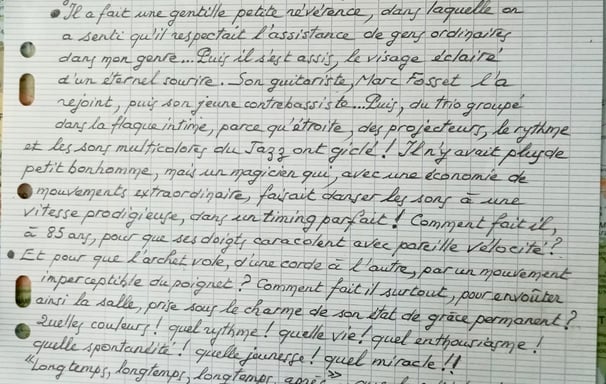 Il a fait une gentille petite révérence, dans laquelle on
a senti qu'il respectait l'assistance de gens ordinaires
dans mon genre... Puis il s'est assis, le visage éclairé
d'un éternel sourire. Son guitariste, Marc Fosset l'a
rejoint, puis son jeune contrebassiste... Puis, du trio groupé
dans la flaque intime, parce qu'étroite, des projecteurs, le rythme
et les sons multicolores du Jazz ont giclé ! Il n'y avait plus de
petit bonhomme, mais un magicien qui, avec une économie de
mouvements extraordinaire, faisait danser les sons à une
vitesse prodigieuse, dans un timing parfait ! Comment fait il,
à 85 ans, pour que ses doigts caracolent avec pareille vélocité ?
Et pour que l'archet vole, d'une corde à l'autre, par un mouvement
imperceptible du poignet ? Comment fait il surtout, pour envoûter
ainsi la salle, prise sous le charme de son état de grâce permanent ?
Quelles couleurs ! quel rythme ! quelle vie ! quel enthousiasme !
quelle spontanéité ! quelle jeunesse ! quel miracle !!
"Longtemps, longtemps, longtemps, après"